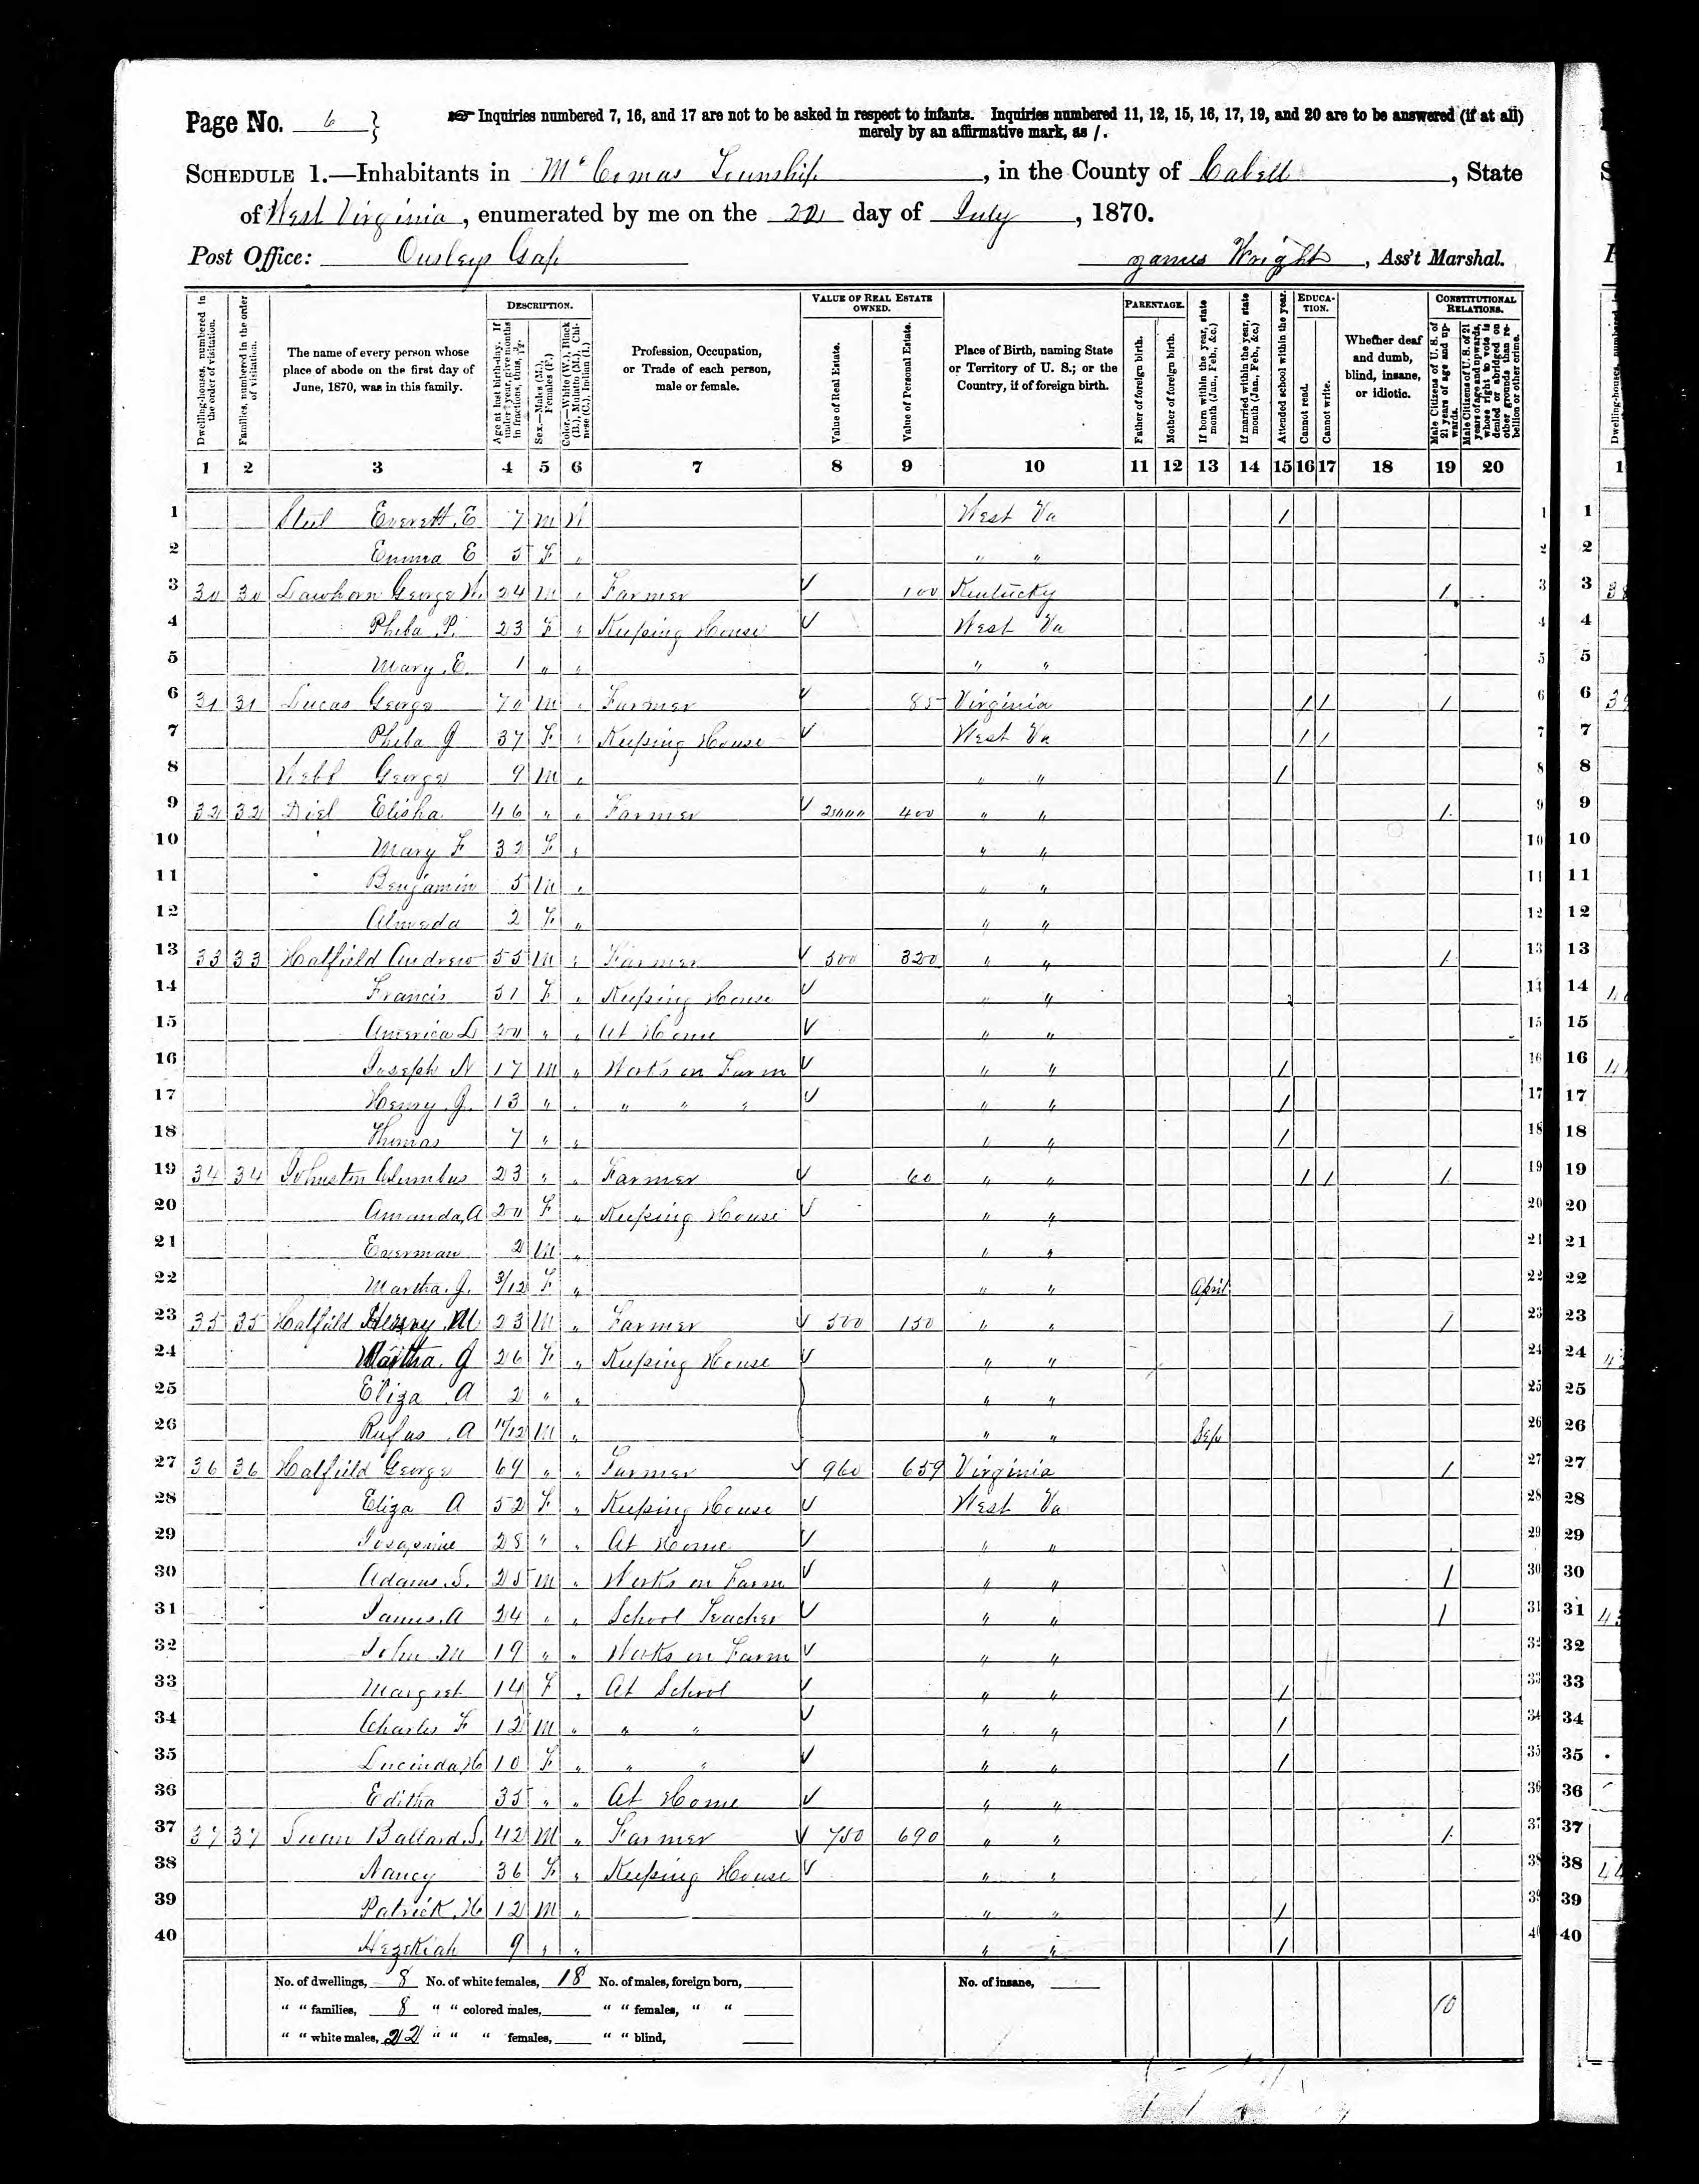 Page No. 6 } ☞ Inquiries numbered 7, 16, and 17 are not to be asked in respect to infants. Inquiries numbered 11, 12, 15, 16, 17, 19, and 20 are to be answered (if at all)
merely by an affirmative mark, as /.
SCHEDULE 1.—Inhabitants in McComas Township, in the County of Cabell, State
of West Virginia, enumerated by me on the 22 day of July, 1870.
Post Office: Ousleys Gap James Wright, Ass't Marshal.
Dwelling-houses, numbered in the order of visitation.
Families, numbered in the order of visitation.
The name of every person whose place of abode on the first day of June, 1870, was in this family.
DESCRIPTION.
Age at last birth-day. If under 1 year, give months in fractions, thus, 3/12.
Sex.—Males (M.), Females (F.)
Color.—White (W.), Black (B.), Mulatto (M.), Chinese (C.), Indian (I.)
Profession, Occupation, or Trade of each person, male or female.
VALUE OF REAL ESTATE OWNED.
Value of Real Estate.
Value of Personal Estate.
Place of Birth, naming State or Territory of U. S.; or the Country, if of foreign birth.
PARENTAGE.
Father of foreign birth.
Mother of foreign birth.
If born within the year, state month (Jan., Feb., &c.)
If married within the year, state month (Jan., Feb., &c.)
Attended school within the year.
EDUCATION.
Cannot read.
Cannot write.
Whether deaf and dumb, blind, insane, or idiotic.
CONSTITUTIONAL RELATIONS.
Male Citizens of U. S. of 21 years of age and upwards.
Male Citizens of U. S. of 21 years of age and upwards, whose right to vote is denied or abridged on other grounds than rebellion or other crime.
1 2 3 4 5 6 7 8 9 10 11 12 13 14 15 16 17 18 19 20
1 Steel Everett. E 7 M W West Va / 1
2 Emma E 5 F " " " 2
3 30 30 Lawhorn George W. 24 M " Farmer 100 Kentucky / 3
4 Pheba. P. 23 F " Keeping House West Va 4
5 Mary. E. 1 " " " " 5
6 31 31 Lucas George 70 M " Farmer 85 Virginia / / / 6
7 Pheba J 37 F " Keeping House West Va / / 7
8 Webb George 9 M " " " / 8
9 32 32 Diel Elisha 46 " " Farmer 2000 400 " " / 9
10 Mary F 32 F " " " 10
11 Benjamin 5 M " " " 11
12 Almeda 2 F " " " 12
13 33 33 Hatfield Andrew 55 M " Farmer 500 320 " " / 13
14 Francis 51 F " Keeping House " " 14
15 America L 20 " " At Home " " 15
16 Joseph N 17 M " Works on Farm " " / 16
17 Henry. J. 13 " " " " " " " / 17
18 Thomas 7 " " " " / 18
19 34 34 Johnston Columbus 23 " " Farmer 60 " " / / / 19
20 Amanda, A 20 F " Keeping House " " 20
21 Everman 2 M " " " 21
22 Martha. J. 3/12 F " " " April 22
23 35 35 Hatfield Henry M 23 M " Farmer 500 150 " " / 23
24 Martha. J 26 F " Keeping House " " 24
25 Eliza A 2 " " " " 25
26 Rufus. A M " " " Sep 26
27 36 36 Hatfield George 69 " " Farmer 960 659 Virginia / 27
28 Eliza A 52 F " Keeping House West Va 28
29 28 " " At Home " " 29
30 Adam. S. 25 M " Works on Farm " " / 30
31 James. A 24 " " School Teacher " " / 31
32 John M 19 " " Works on Farm " " 32
33 Margret 14 F " At School " " / 33
34 Charles F 12 M " " " " " / 34
35 Lucinda, H 10 F " " " " " / 35
36 Editha 35 " " At Home " " 36
37 37 37 Swan Ballard. S. 42 M " Farmer 750 690 " " / 37
38 Nancy 36 F " Keeping House " " 38
39 Patrick. H 12 M " " " / 39
40 Hezekiah 9 " " " " / 40
No. of dwellings, 8 No. of white females, 18 No. of males, foreign born, No. of insane,
" " families, 8 " " colored males, " " females, " " 10
" " white males, 22 " " " females, " " blind,